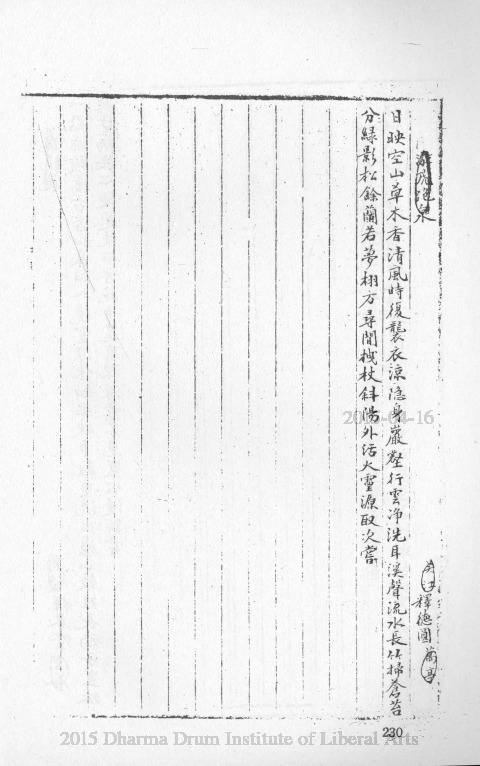 虎跑泉
釋德圓
日映空山草木香清風時復襲衣涼隐身巖壑行雲净洗耳溪聲流水長竹掃蒼苔
分緑影松餘蘭若夢栩方尋閒拽杖斜陽外活火靈源取次嘗
230
2015 Dharma Drum Institute of Liberal Arts